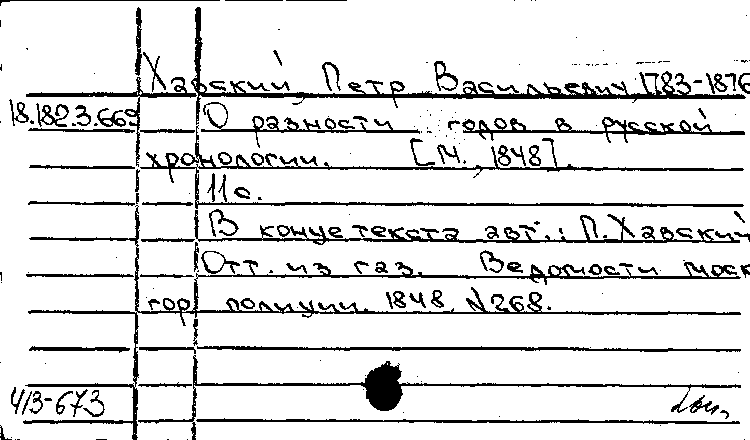 Хавский, Петр Васильевич, 1783-1876
18.182.3.669 О разности годов в русской
хронологии. [М., 1848].
11 с.
В конце текста авт.: П. Хавский
Отт. из газ. Ведомости моск
гор полиции. 1848, N268.
413-673